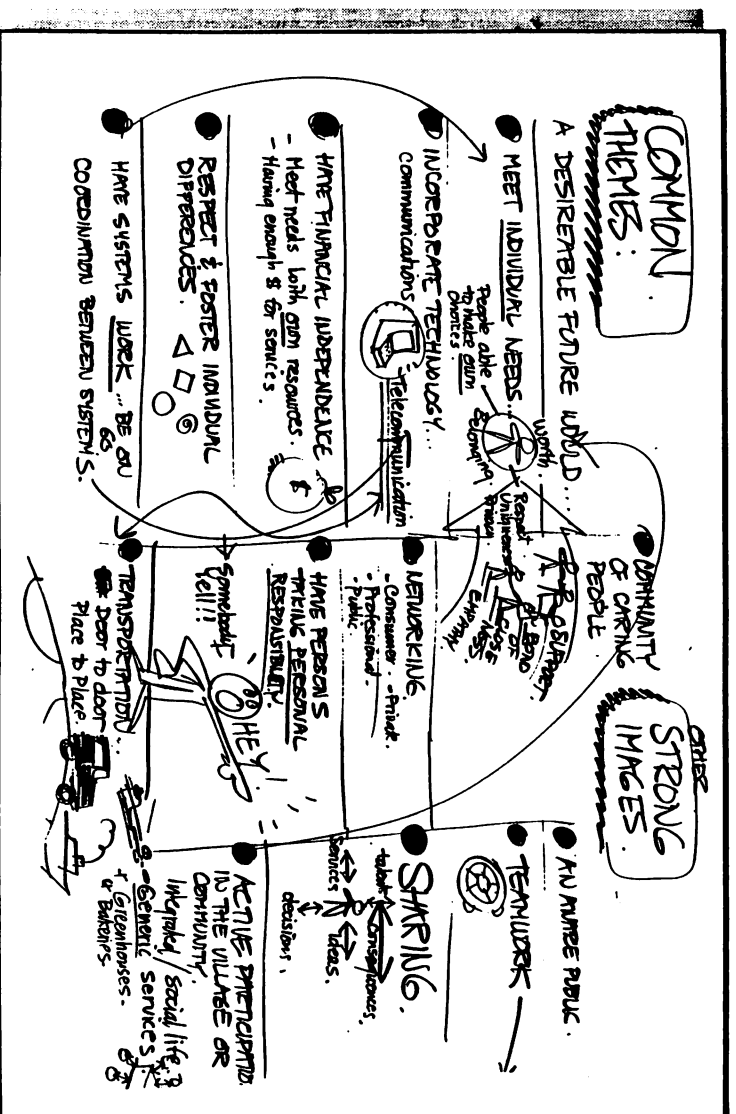 COMMON
THEMES:
A DESIREABLE FUTURE WOULD...
MEET INDIVIDUAL NEEDS...
People able
to make own
choices.
Worth.
Belonging
Respect
Uniqueness
Privacy
INCORPORATE TECHNOLOGY...
Communications
Telecommunication
HAVE FINANCIAL INDEPENDENCE
- Meet needs with own resources.
- Having enough $ for services.
$
RESPECT & FOSTER INDIVIDUAL
DIFFERENCES.
HAVE SYSTEMS WORK... BE ON
GO
COORDINATION BETWEEN SYSTEMS.
COMMUNITY
OF CARING
PEOPLE.
SUPPORT
BOND
OF
CLOSE
NESS.
EMPATHY
NETWORKING.
- Consumer. - Private.
- Professional.
- Public
HAVE PERSONS
TAKING PERSONAL
RESPONSIBILITY.
Somebody
Yell!!
HEY!
TRANSPORTATION...
Door to door
Place to Place.
OTHER
STRONG
IMAGES.
AN AWARE PUBLIC.
TEAMWORK
SHARING.
talent
Consequences.
Services
Ideas.
decisions.
ACTIVE PARTICIPATIO.
IN THE VILLAGE OR
COMMUNITY.
Integrated/social life.
- Generic services
+ Greenhouses -
or Bakeries -